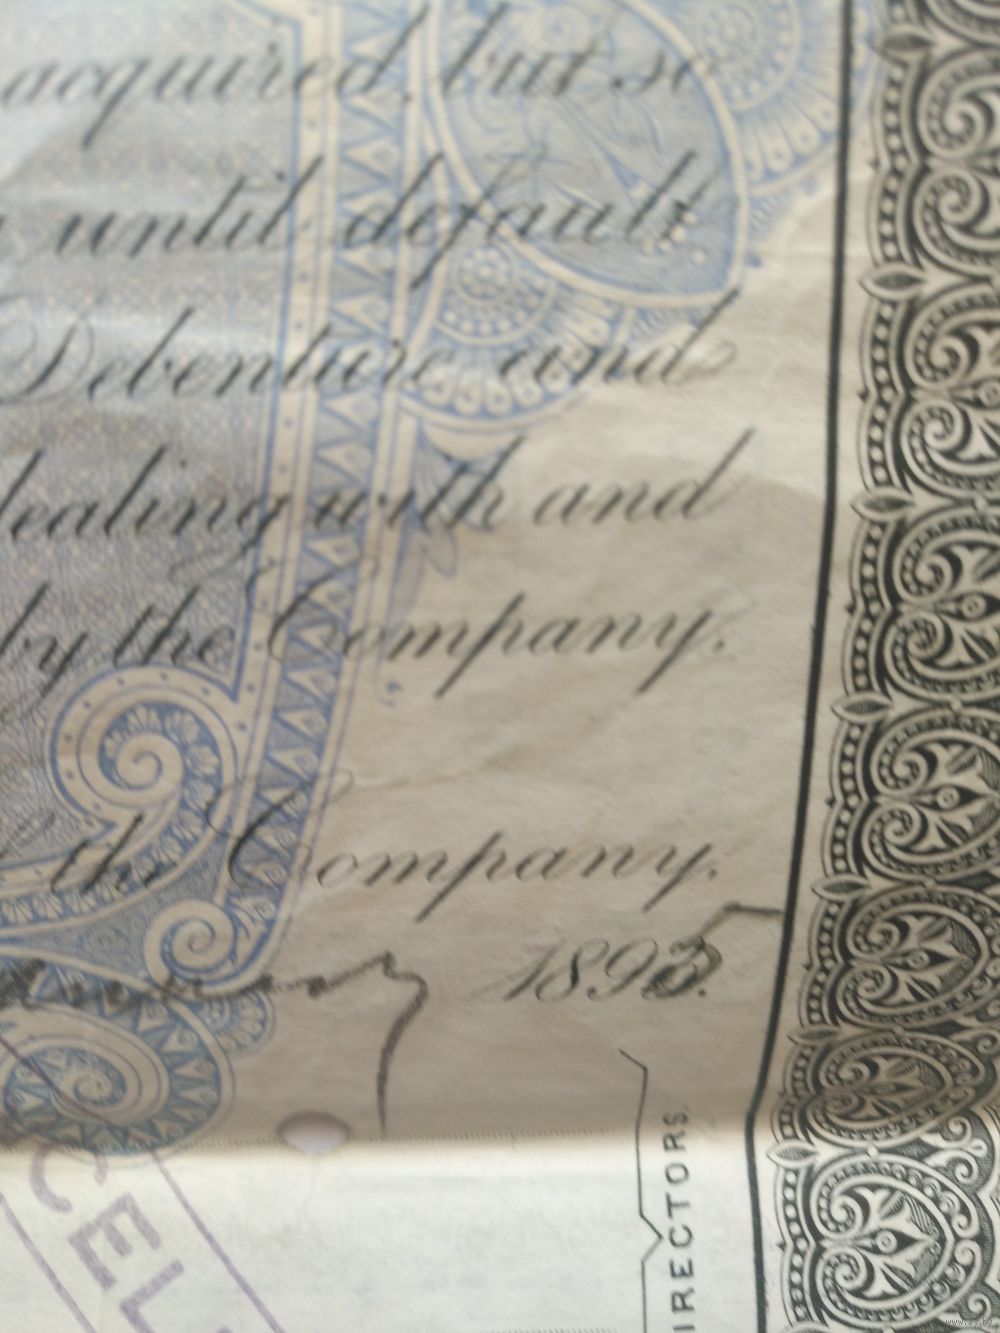 acquired, but so
until default
Debenture and
dealing with and
by the Company.
the Company.
1895.
DIRECTORS.
CEL
www.ay.by